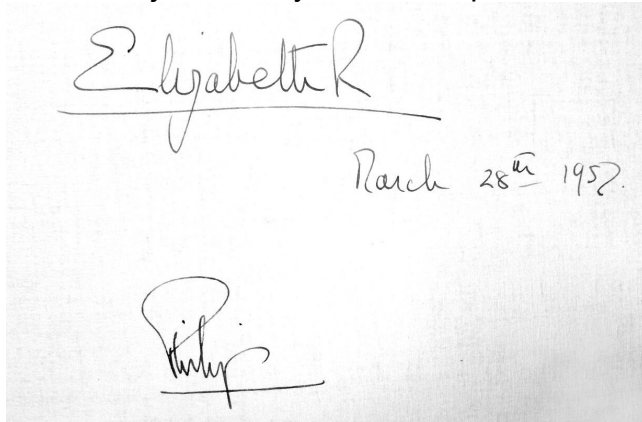 Elizabeth R
March 28th 1957.
Philip